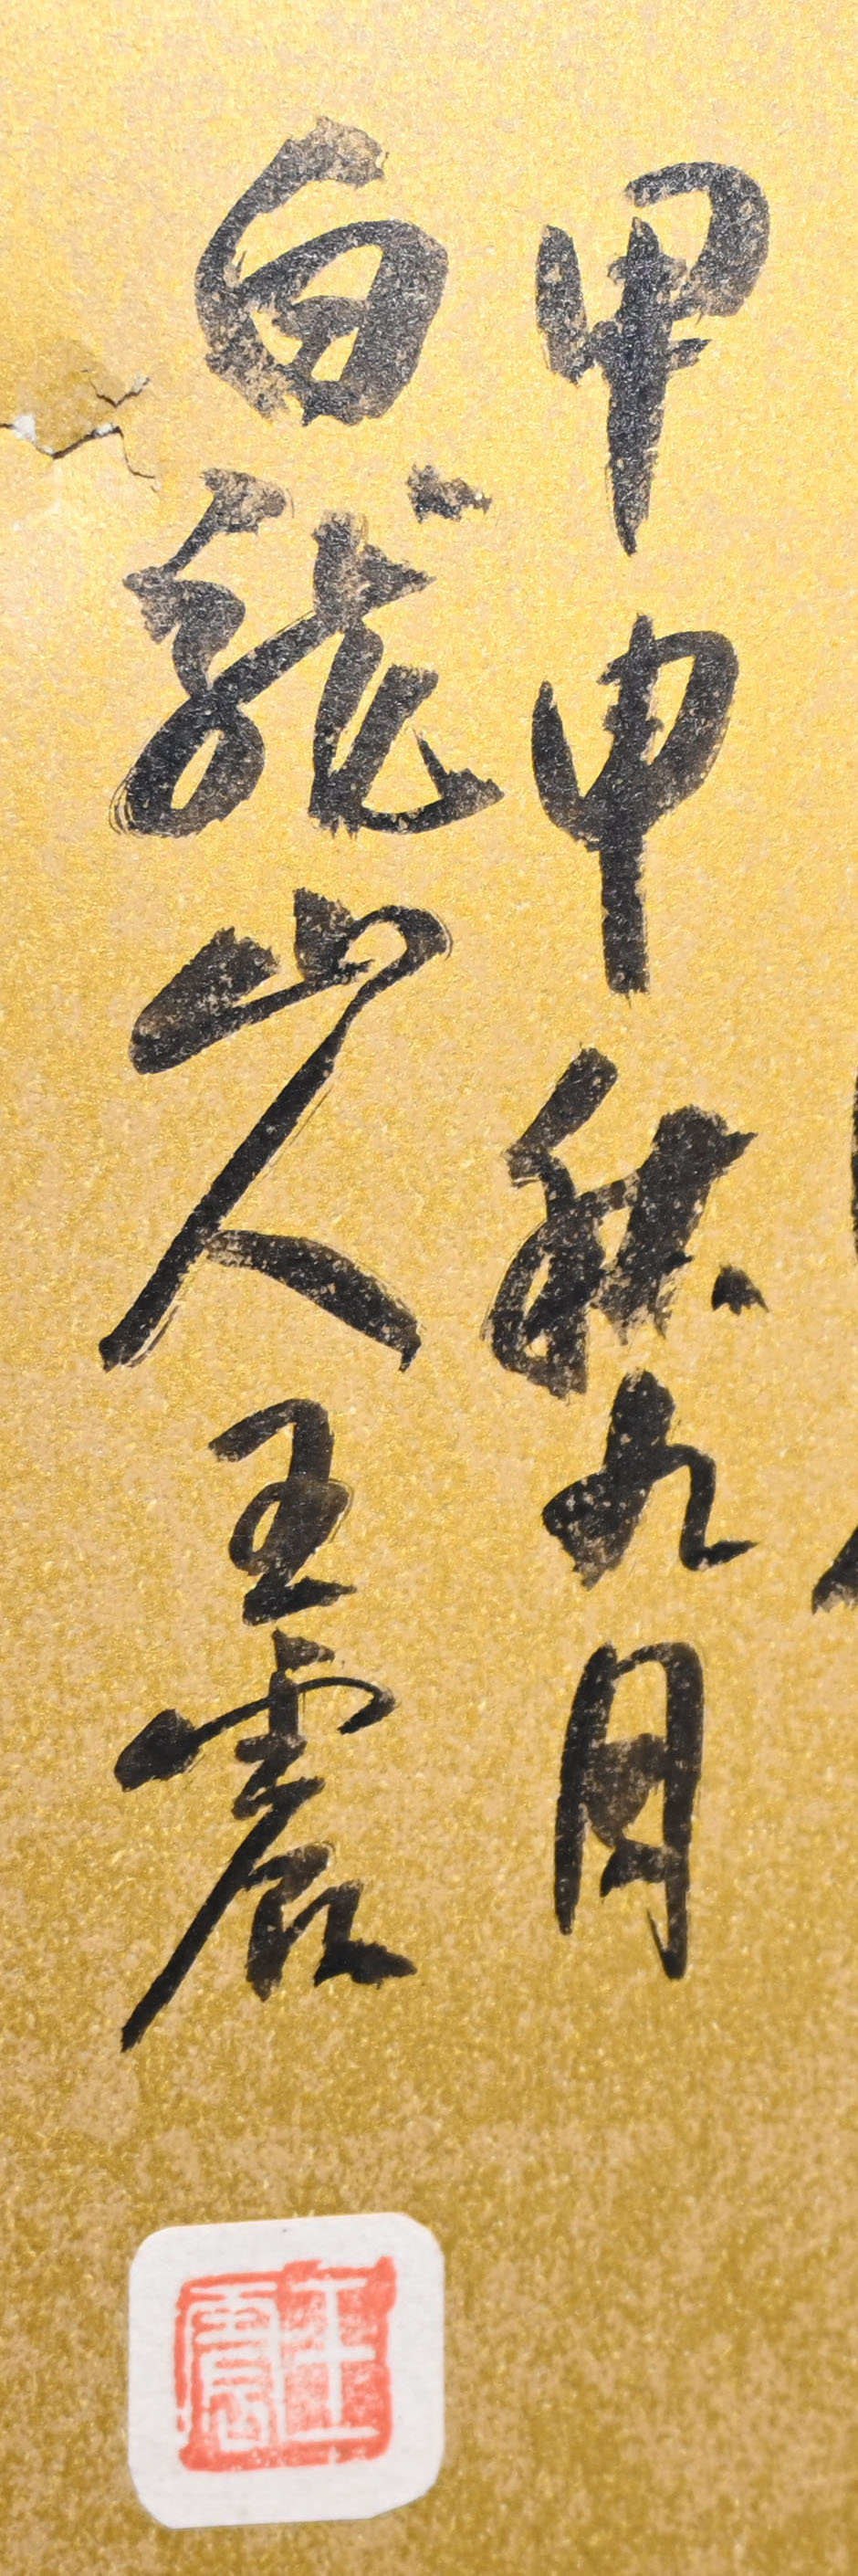 甲申秋九月
白龍山人王震
王震